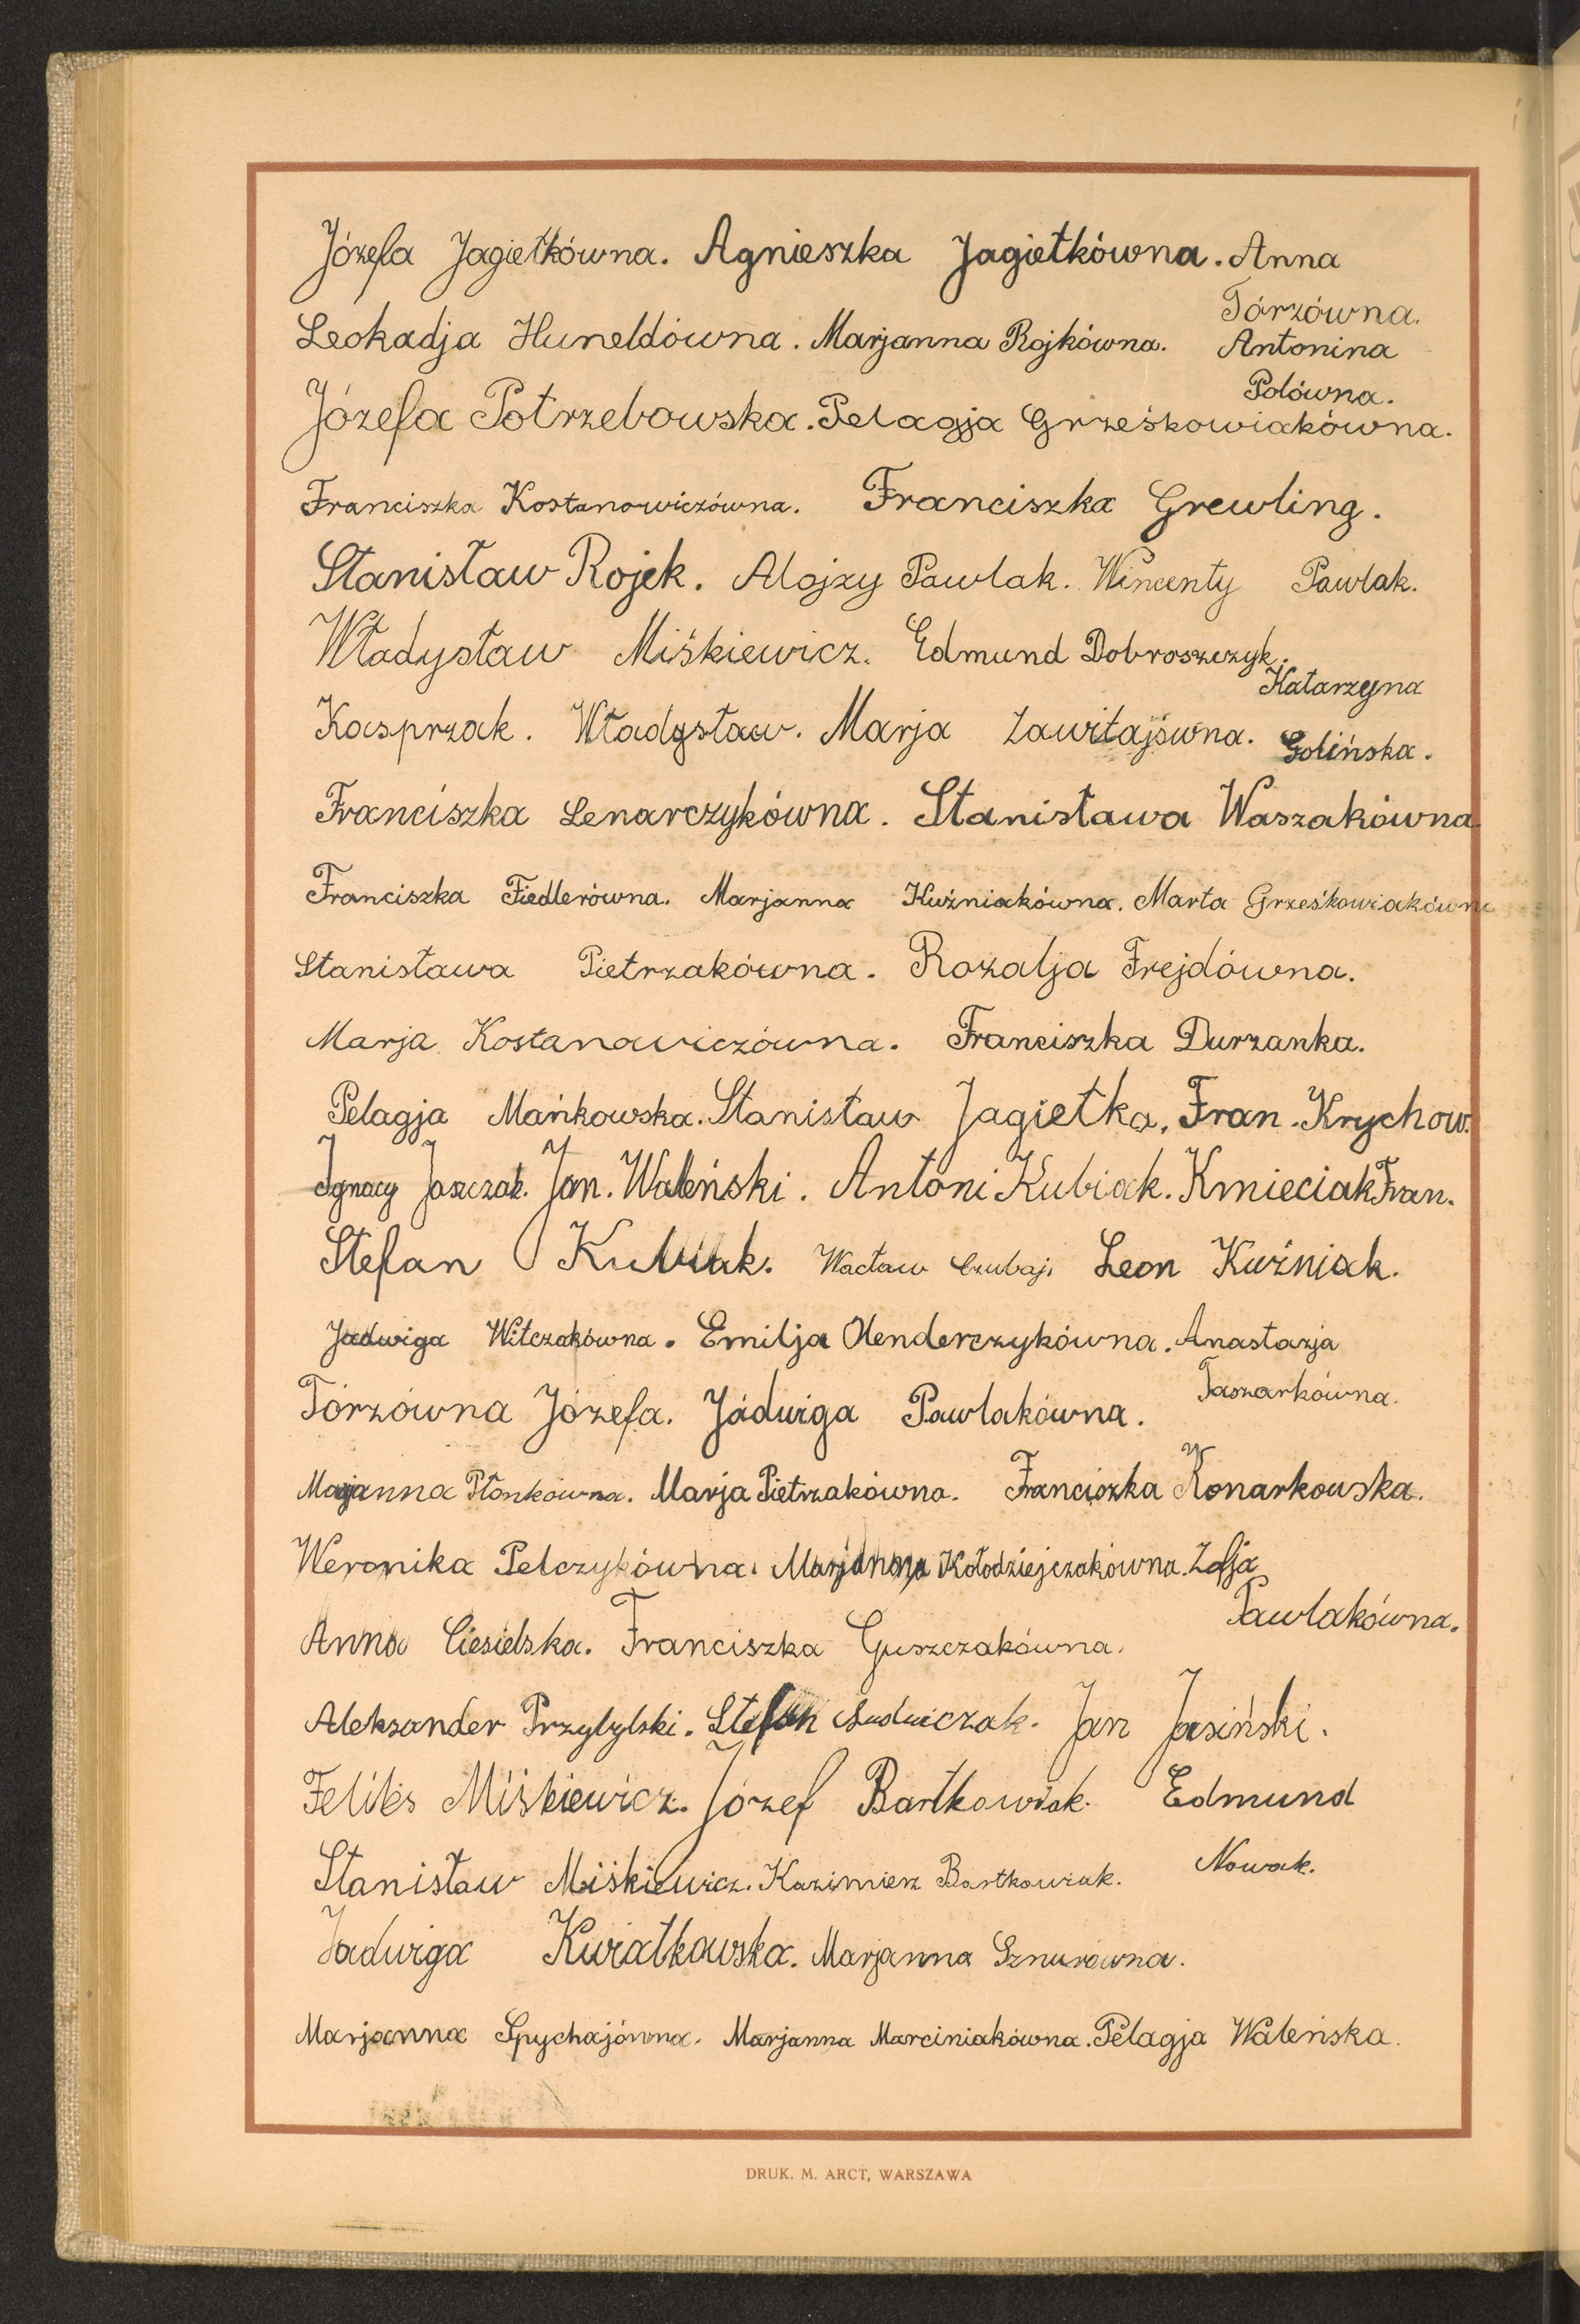 Józefa Jagiełkówna. Agnieszka Jagiełkówna. Anna
Tórzówna.
Leokadja Huneldówna. Marjanna Rojkówna. Antonina
Polówna.
Józefa Potrzebowska. Pelagja Grześkowiakówna.
Franciszka Kostanowiczówna. Franciszka Grewling.
Stanisław Rojek. Alojzy Pawlak. Wincenty Pawlak.
Władysław Miśkiewicz. Edmund Dobroszczyk.
Katarzyna
Kasprzak. Władysław. Marja Zawitajówna. Golińska.
Franciszka Lenarczykówna. Stanisława Waszakówna
Franciszka Fiedlerówna. Marjanna Kuźniakówna. Marta Grześkowiakówna
Stanisława Pietrzakówna. Rozalja Frejdówna.
Marja Kostanowiczówna. Franciszka Durzanka.
Pelagja Mańkowska. Stanisław Jagiełka, Fran. Krychow.
Ignacy Jaszczak. Jan. Waleński. Antoni Kubiak. Kmieciak Fran.
Stefan Kubiak. Wacław Czubaj. Leon Kuźniak.
Jadwiga Witczakówna. Emilja Olenderczykówna. Anastazja
Taszarkówna.
Tórzówna Józefa. Jadwiga Pawlakówna.
Marjanna Płonkówna. Marja Pietrzakówna. Franciszka Konarkowska.
Weronika Pelczykówna. Marjanna Kołodziejczakówna. Zofja
Pawlakówna.
Anna Ciesielska. Franciszka Guszczakówna.
Aleksander Przybylski. Stefan Ludwiczak. Jan Jasiński.
Feliks Miśkiewicz. Józef Bartkowiak. Edmund
Nowak.
Stanisław Miśkiewicz. Kazimierz Bartkowiak.
Jadwiga Kwiatkowska. Marjanna Sznurówna.
Marjanna Spychajówna. Marjanna Marciniakówna. Pelagja Waleńska.
DRUK. M. ARCT, WARSZAWA